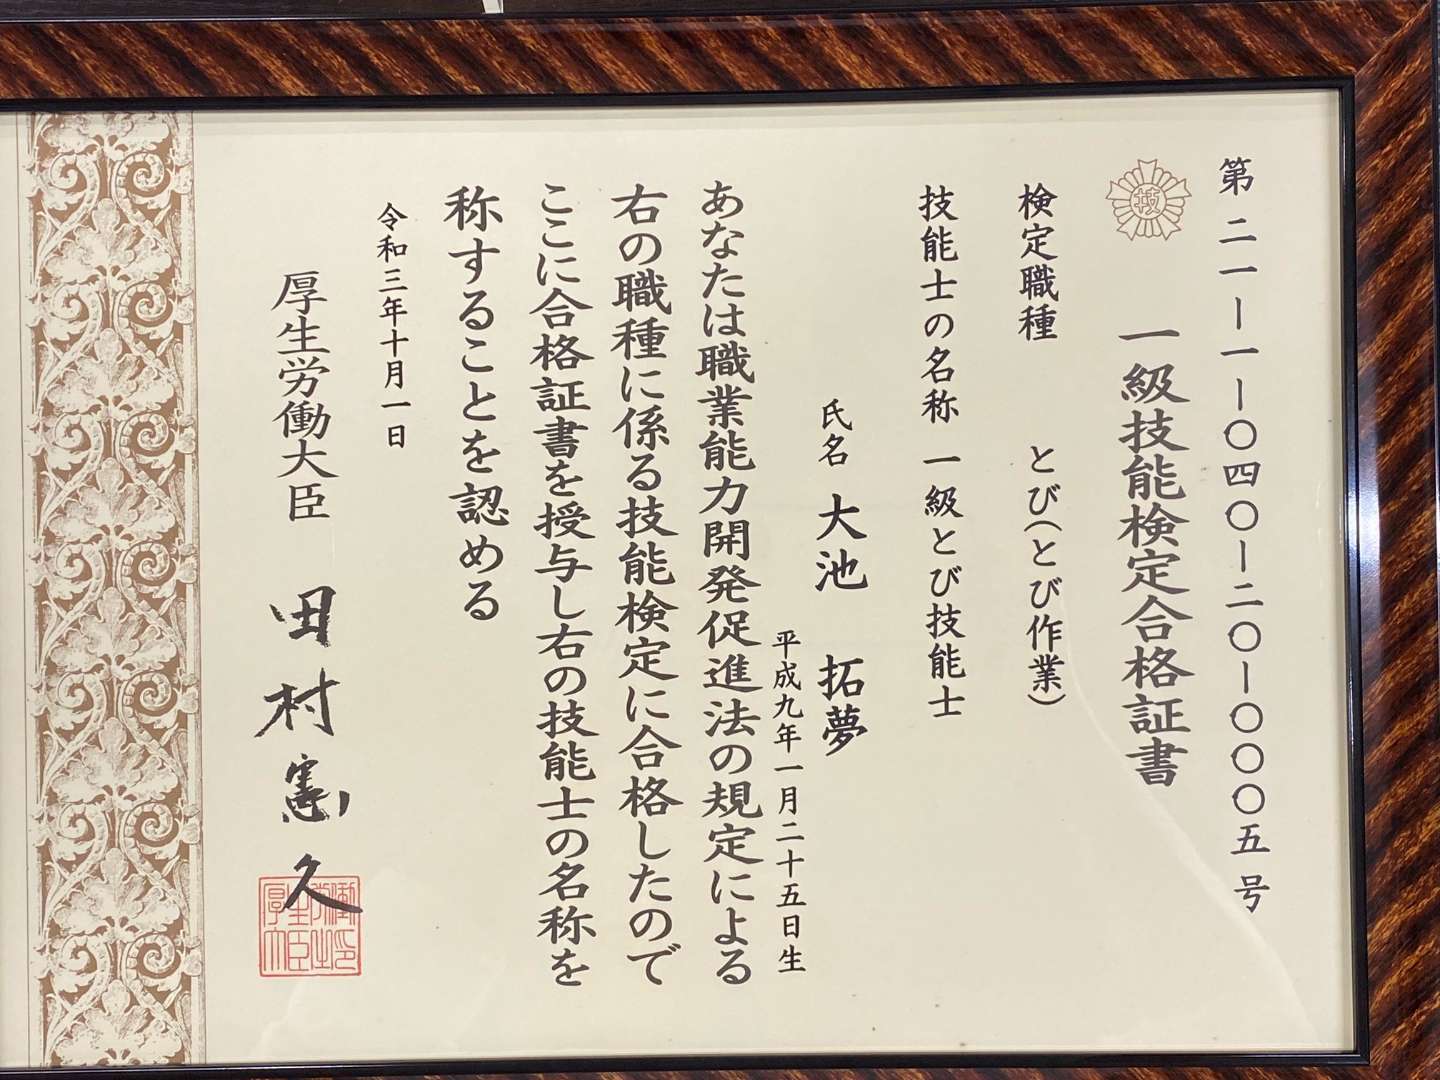 第二一ー一ー〇四〇ー二〇ー〇〇〇五号
技
一級技能検定合格証書
検定職種 とび(とび作業)
技能士の名称 一級とび技能士
氏名 大池 拓夢
平成九年一月二十五日生
あなたは職業能力開発促進法の規定による
右の職種に係る技能検定に合格したので
ここに合格証書を授与し右の技能士の名称を
称することを認める
令和三年十月一日
厚生労働大臣 田村憲久